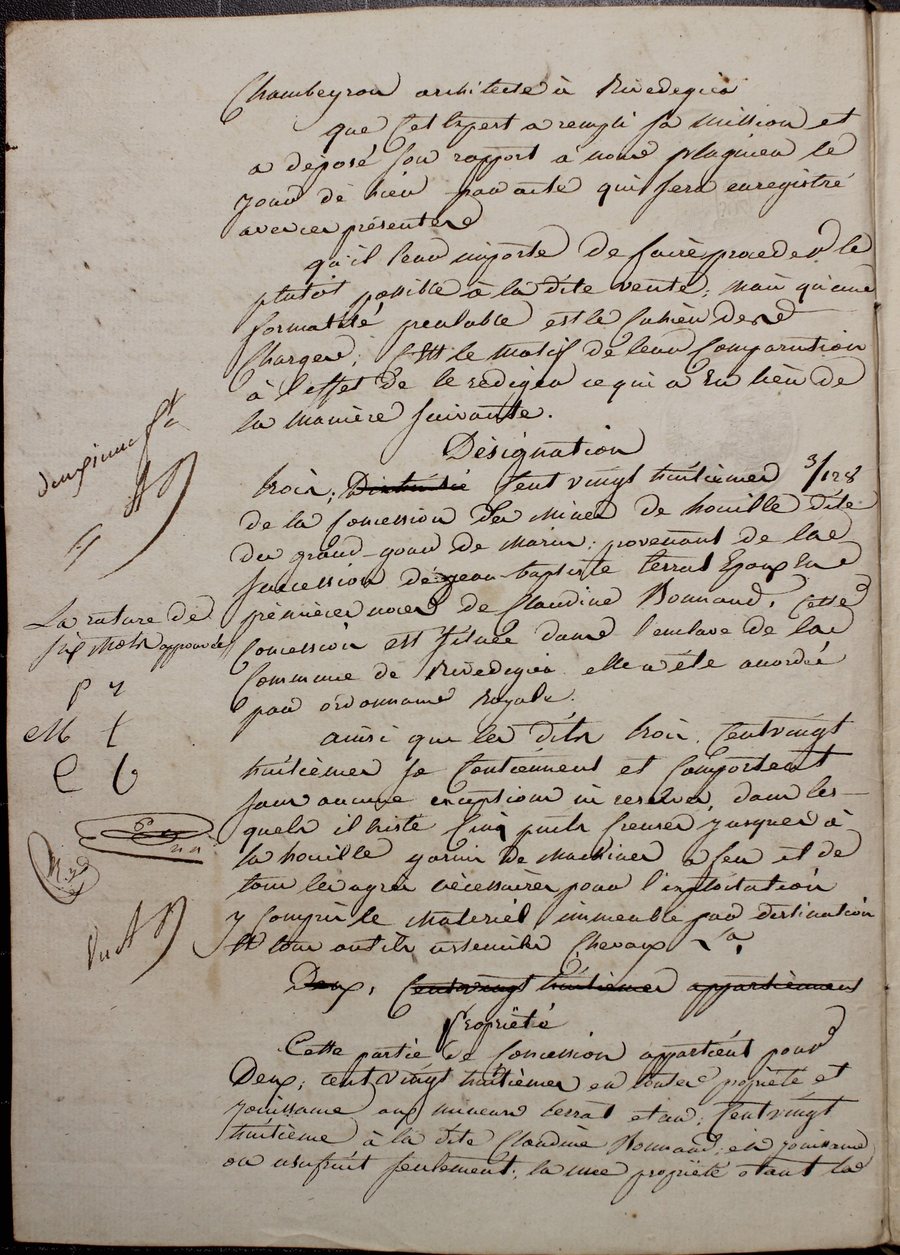 Chambeyron architecte à Rivedegier
que cet Expert a rempli sa mission et
a déposé son rapport à nous plagnieu le
jour de hier par acte qui sera enregistré
avec ces présentes
qu'il leur importe de faire proceder le
plutôt possible à la dite vente, mais qu'une
formalité préalable est le Cahier des
Charges; C'est le motif de leur Comparution
à l'effet de le rediger ce qui a Eu lieu de
la manière suivante.
Désignation
trois, Cent vingt huitiemes 3/128
de la Concession des mines de houille dite
du grand-gour de marin, provenant de la
succession de jean-baptiste terrat Epoux En
premières noces de Claudine Bonnand. Cette
Concession est située dans l'enclave de la
Commune de Rivedegier elle a été accordée
par ordonnance Royale.
ainsi que les dits trois, Cent vingt
huitièmes se Contiennent et Comportent
sans aucune exception ni reserve, dans les-
quels il Existe Cinq puits Creusés jusques à
la houille garnis de machines à feu et de
tous les agrès nécessaires pour l'exploitation
y Compris le matériel immeuble par destination
et tous outils ustensiles Chevaux &a.
Deux, Cent vingt huitiemes appartiennent
Propriété
Cette partie de Concession appartient pour
Deux, cent vingt huitiemes en toute propriété et
jouissance aux mineurs terrat et un, Cent vingt
huitième à la dite Claudine Bonnand, en jouissance
ou usufruit seulement, la nue propriété étant la
deuxieme
La rature de
six mots approuvée
P y
M t
C b